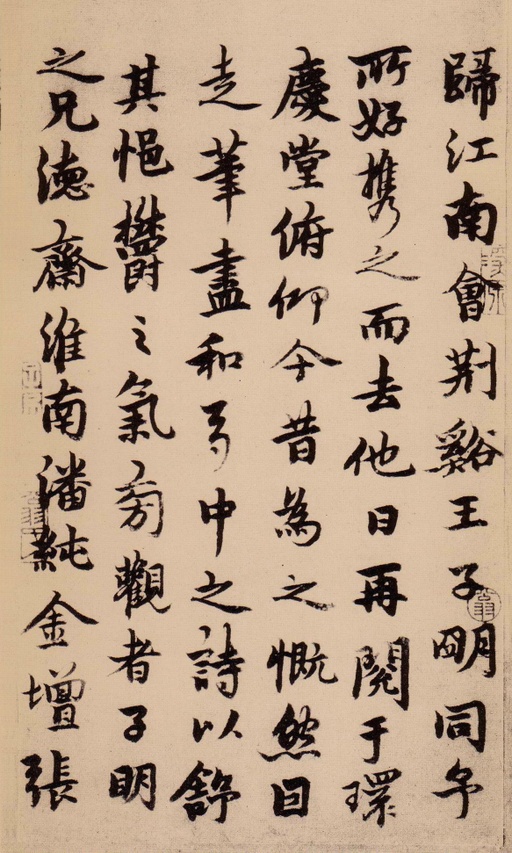 歸江南會荆谿王子明同予
所好攜之而去他日再閱于環
慶堂俯仰今昔為之慨然因
走筆盡和卷中之詩以舒
其悒鬱之氣旁觀者子明
之兄德齋淮南潘純金壇張